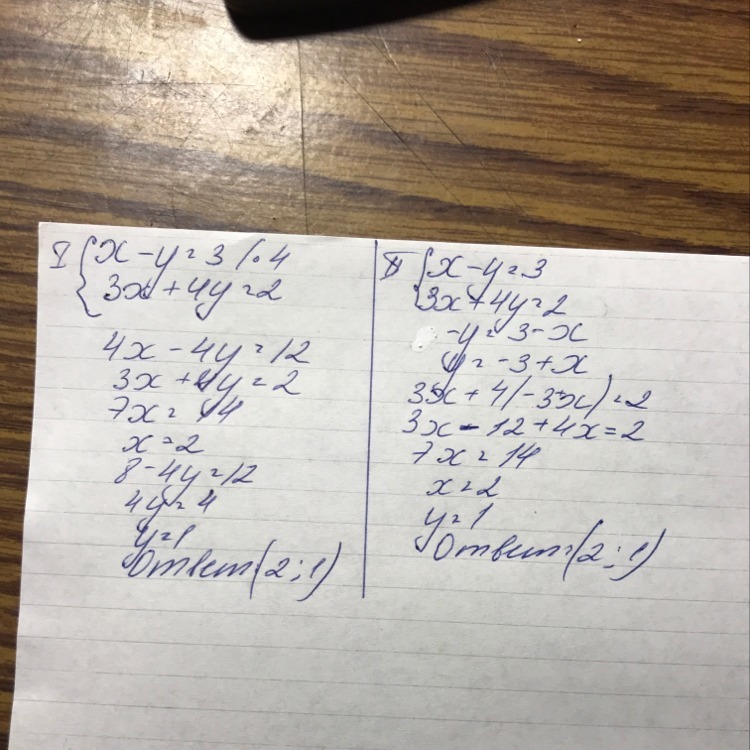 I { x - y = 3 / · 4
3x + 4y = 2
4x - 4y = 12
3x + 4y = 2
7x = 14
x = 2
8 - 4y = 12
4y = 4
y = 1
Ответ (2 ; 1)
II { x - y = 3
3x + 4y = 2
-y = 3 - x
y = -3 + x
3x + 4(-3+x) = 2
3x - 12 + 4x = 2
7x = 14
x = 2
y = 1
Ответ: (2 ; 1)